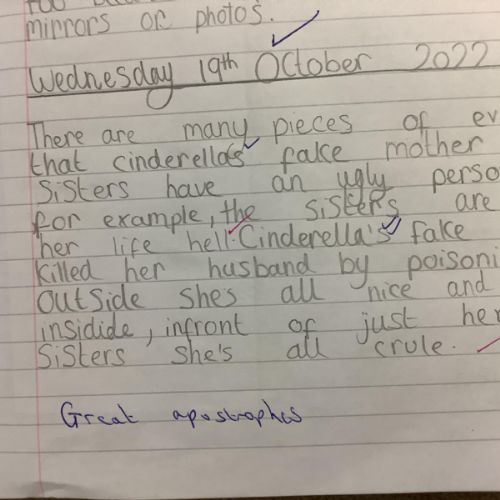 mirrors or photos.
Wednesday 19th October 2022
There are many pieces of ev
that cinderella's fake mother
Sisters have an ugly perso
for example, the sisters are
her life hell. Cinderella's fake
killed her husband by poisoni
outside she's all nice and
insidide, infront of just her
Sisters she's all crule.
Great apostrophes